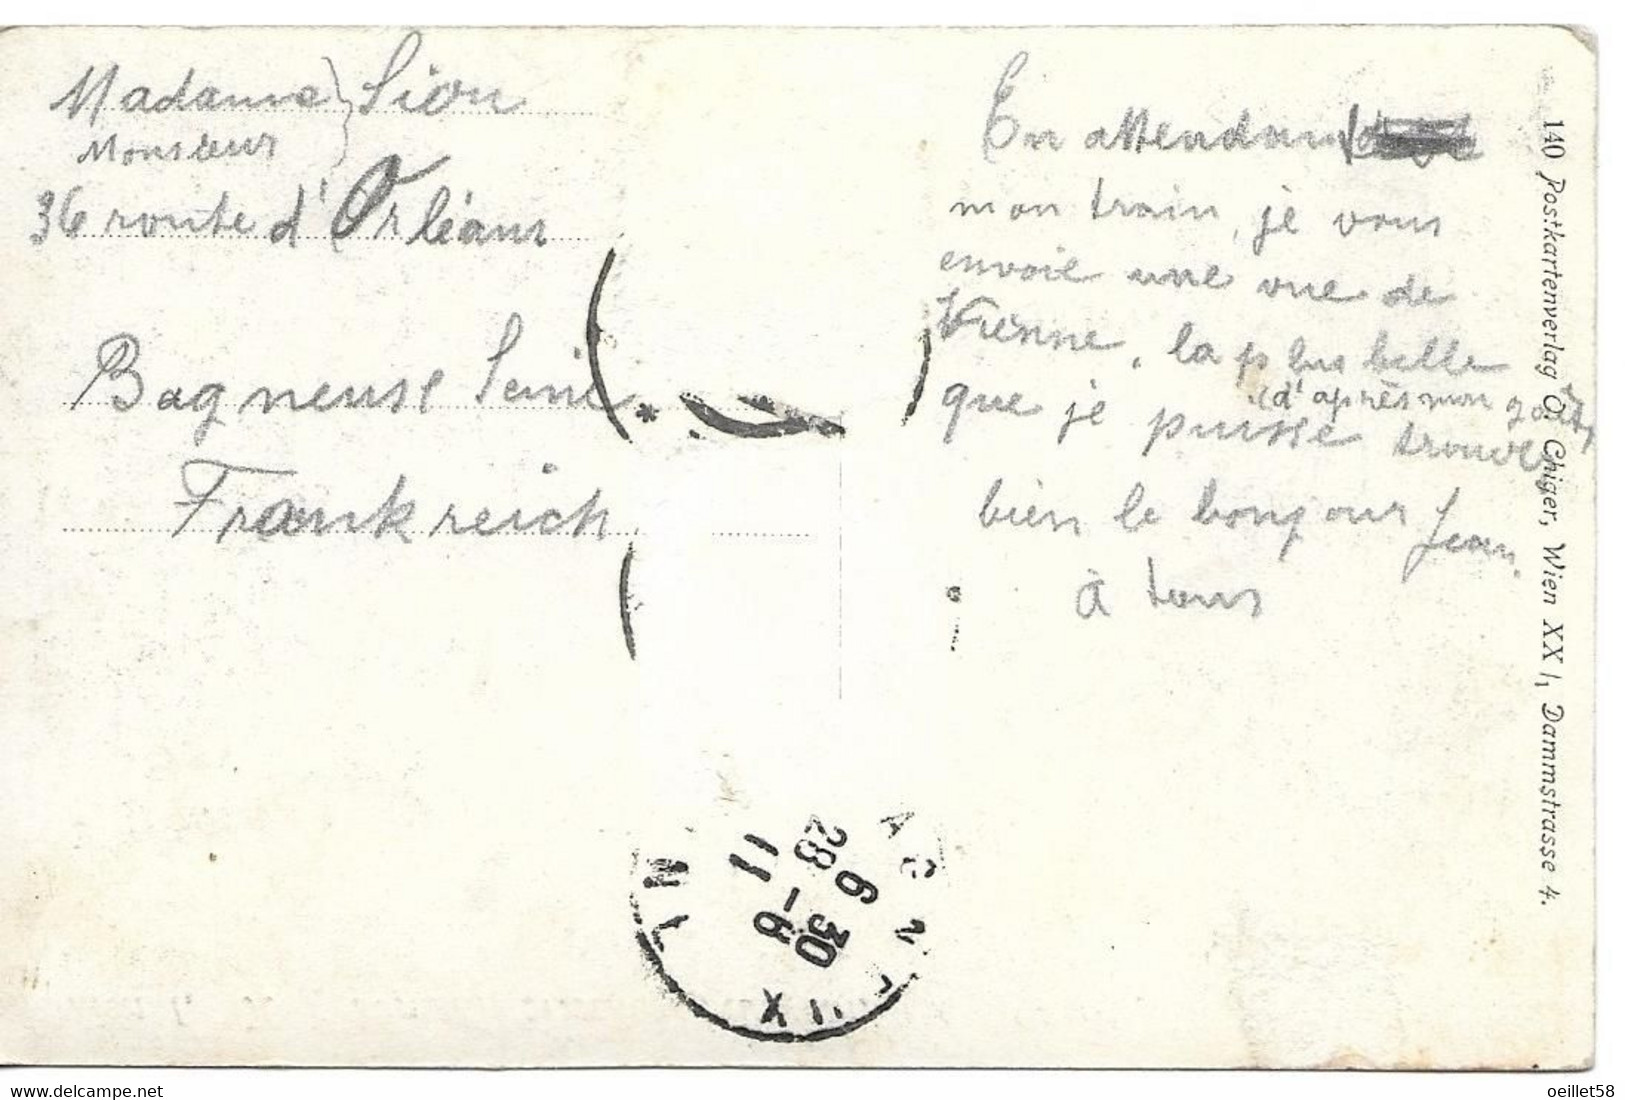 Madame } Sion
Monsieur
36 route d'Orléans
Bagneuse Seine
Frankreich
En attendant
mon train, je vous
envoie une vue de
Vienne, la plus belle
(d'après mon goût)
que je puisse trouver
bien le bonjour Jean.
à tous
140 Postkartenverlag O. Chiger, Wien XX/1, Dammstrasse 4.
28 6 30
11 -6
oeillet58